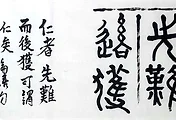 先難
後獲
仁者先難
而後獲可謂
仁矣